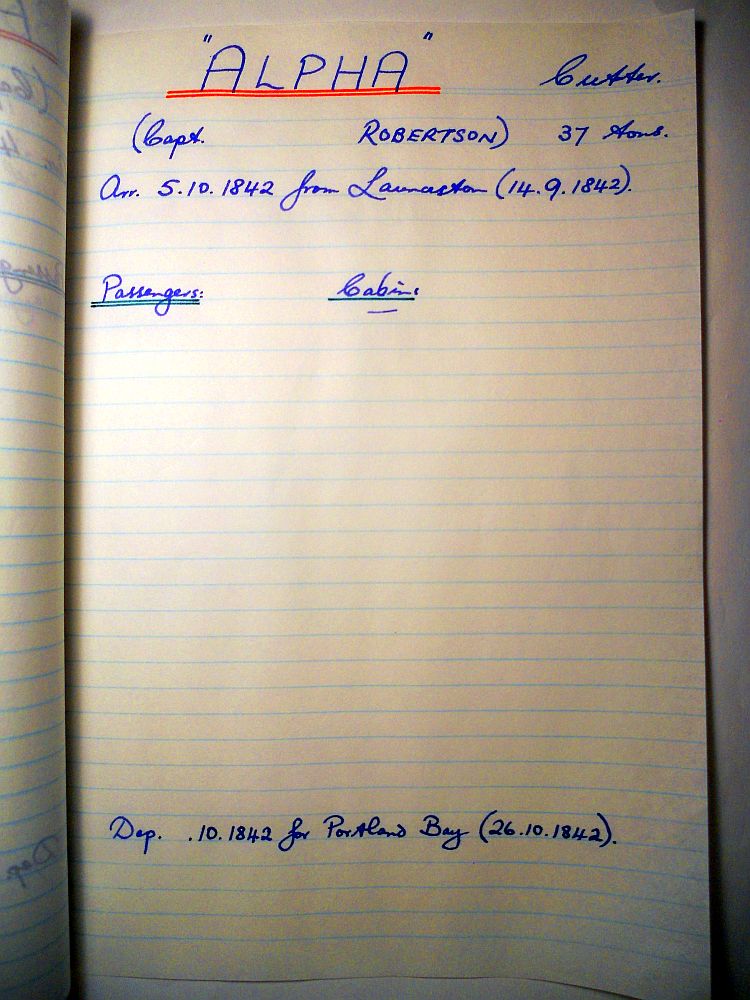 "ALPHA" Cutter.
(Capt. ROBERTSON) 37 tons.
Arr. 5.10.1842 from Launceston (14.9.1842).
Passengers: Cabin:
Dep. .10.1842 for Portland Bay (26.10.1842).